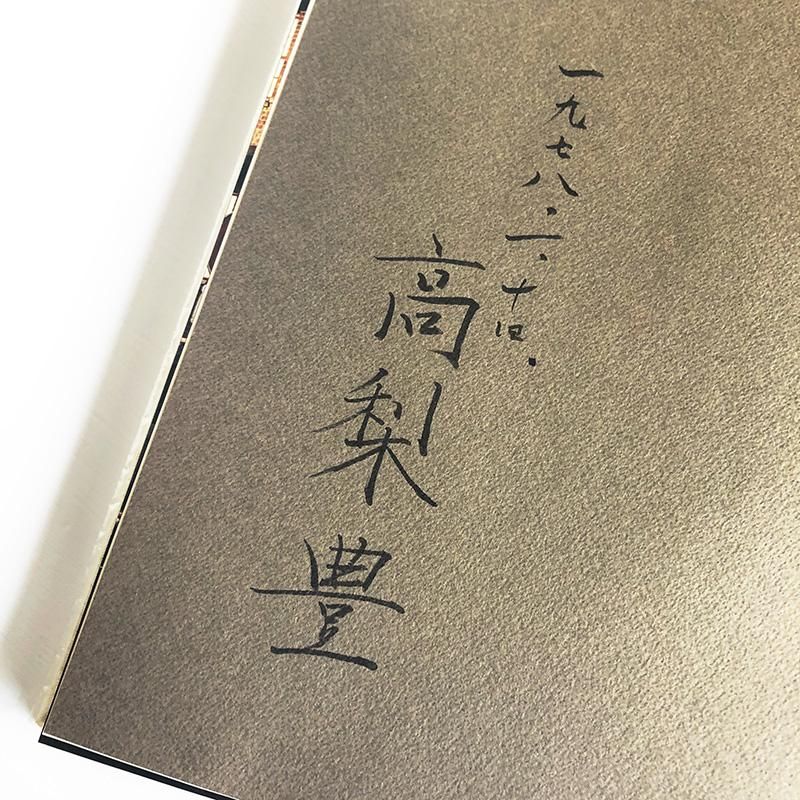 一九七八・一、十四.
高梨豊